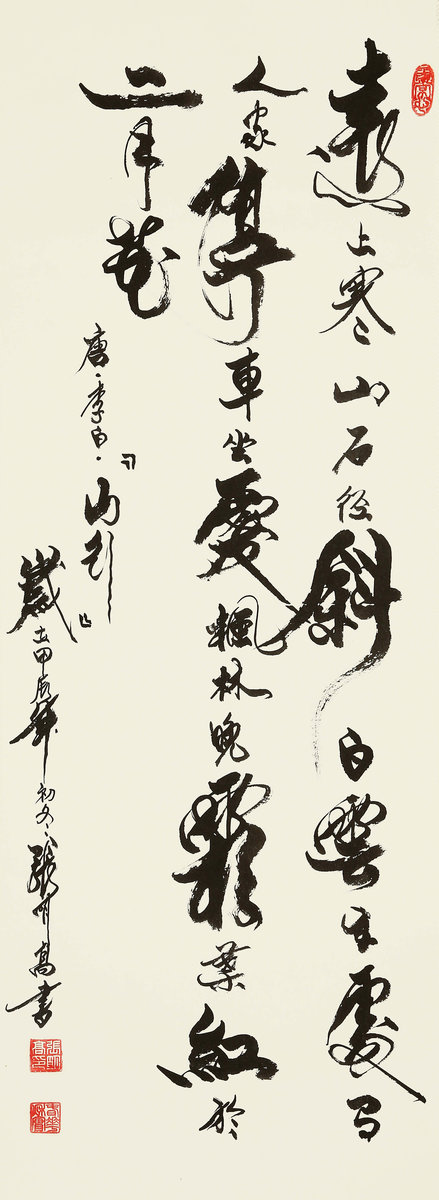 遠上寒山石径斜白雲生處有
人家停車坐愛楓林晚霜葉紅於
二月花
唐·李白·『山行』
歲在甲辰年初冬張明高書